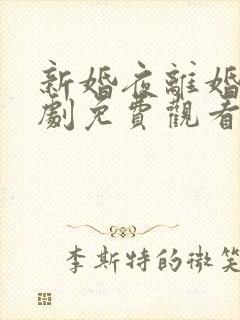 新婚夜離婚
劇免費觀看
李斯特的微笑